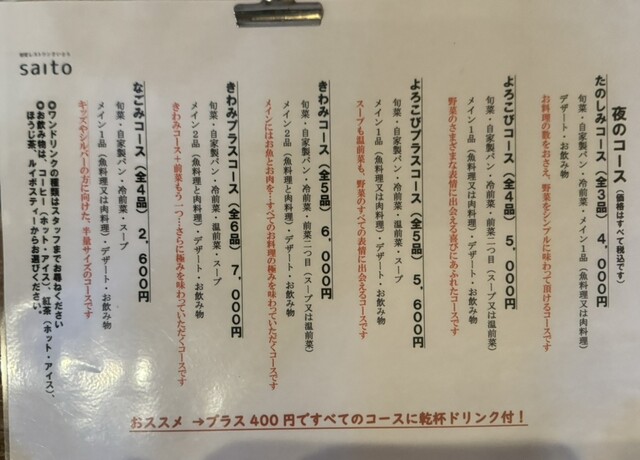 saito
夜のコース（価格はすべて税込です）
たのしみコース（全3品）4,000円
旬菜・自家製パン・冷前菜・メイン1品（魚料理又は肉料理）
デザート・お飲み物
お料理の数をおさえ、野菜をシンプルに味わって頂けるコースです
よろこびコース（全4品）5,000円
旬菜・自家製パン・冷前菜・前菜二つ目（スープ又は温前菜）
メイン1品（魚料理又は肉料理）・デザート・お飲み物
野菜のさまざまな表情に出会える喜びにあふれたコースです
よろこびプラスコース（全5品）5,600円
旬菜・自家製パン・冷前菜・温前菜・スープ
メイン1品（魚料理又は肉料理）・デザート・お飲み物
スープも温前菜も、野菜のすべての表情に出会えるコースです
きわみコース（全5品）6,000円
旬菜・自家製パン・冷前菜・前菜二つ目（スープ又は温前菜）
メイン2品（魚料理と肉料理）・デザート・お飲み物
メインにはお魚とお肉を…すべてのお料理の極みを味わっていただくコースです
きわみプラスコース（全6品）7,000円
旬菜・自家製パン・冷前菜・温前菜・スープ
メイン2品（魚料理と肉料理）・デザート・お飲み物
きわみコース＋前菜もう一つ…さらに極みを味わっていただくコースです
なごみコース（全4品）2,600円
旬菜・自家製パン・冷前菜・スープ
メイン1品（魚料理又は肉料理）・デザート・お飲み物
キッズやシルバーの方に向けた、半量サイズのコースです
◎ワンドリンクの種類はスタッフまでお尋ねください
◎お飲み物は、コーヒー（ホット・アイス）、紅茶（ホット・アイス）、
ほうじ茶、ルイボスティーからお選びください。
おススメ →プラス400円ですべてのコースに乾杯ドリンク付！